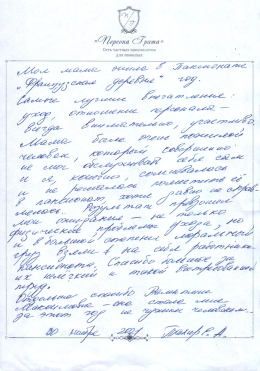 «Персона Грата»
Сеть частных пансионатов
для пожилых
Моя мама жила в Пансионате
"Французская деревня" год.
Самые лучшие впечатления:
уход, отношение персонала –
всегда внимательно, участливо.
Мама была уже пожилой
человек, который совершенно
не мог обслуживать себя сам
и я, конечно, сомневалась
и не решалась поместить её
в пансионат, хотя давно не справ-
лялась. Результат превзошел
мои ожидания – не только
физические проблемы ухода, но
и в большой степени моральный
груз взяли на себя работники
пансионата. Спасибо большое за
их нелегкий и такой востребованный
труд.
Отдельно спасибо
она стала мне
за этот год не чужим человеком.
20 ноября